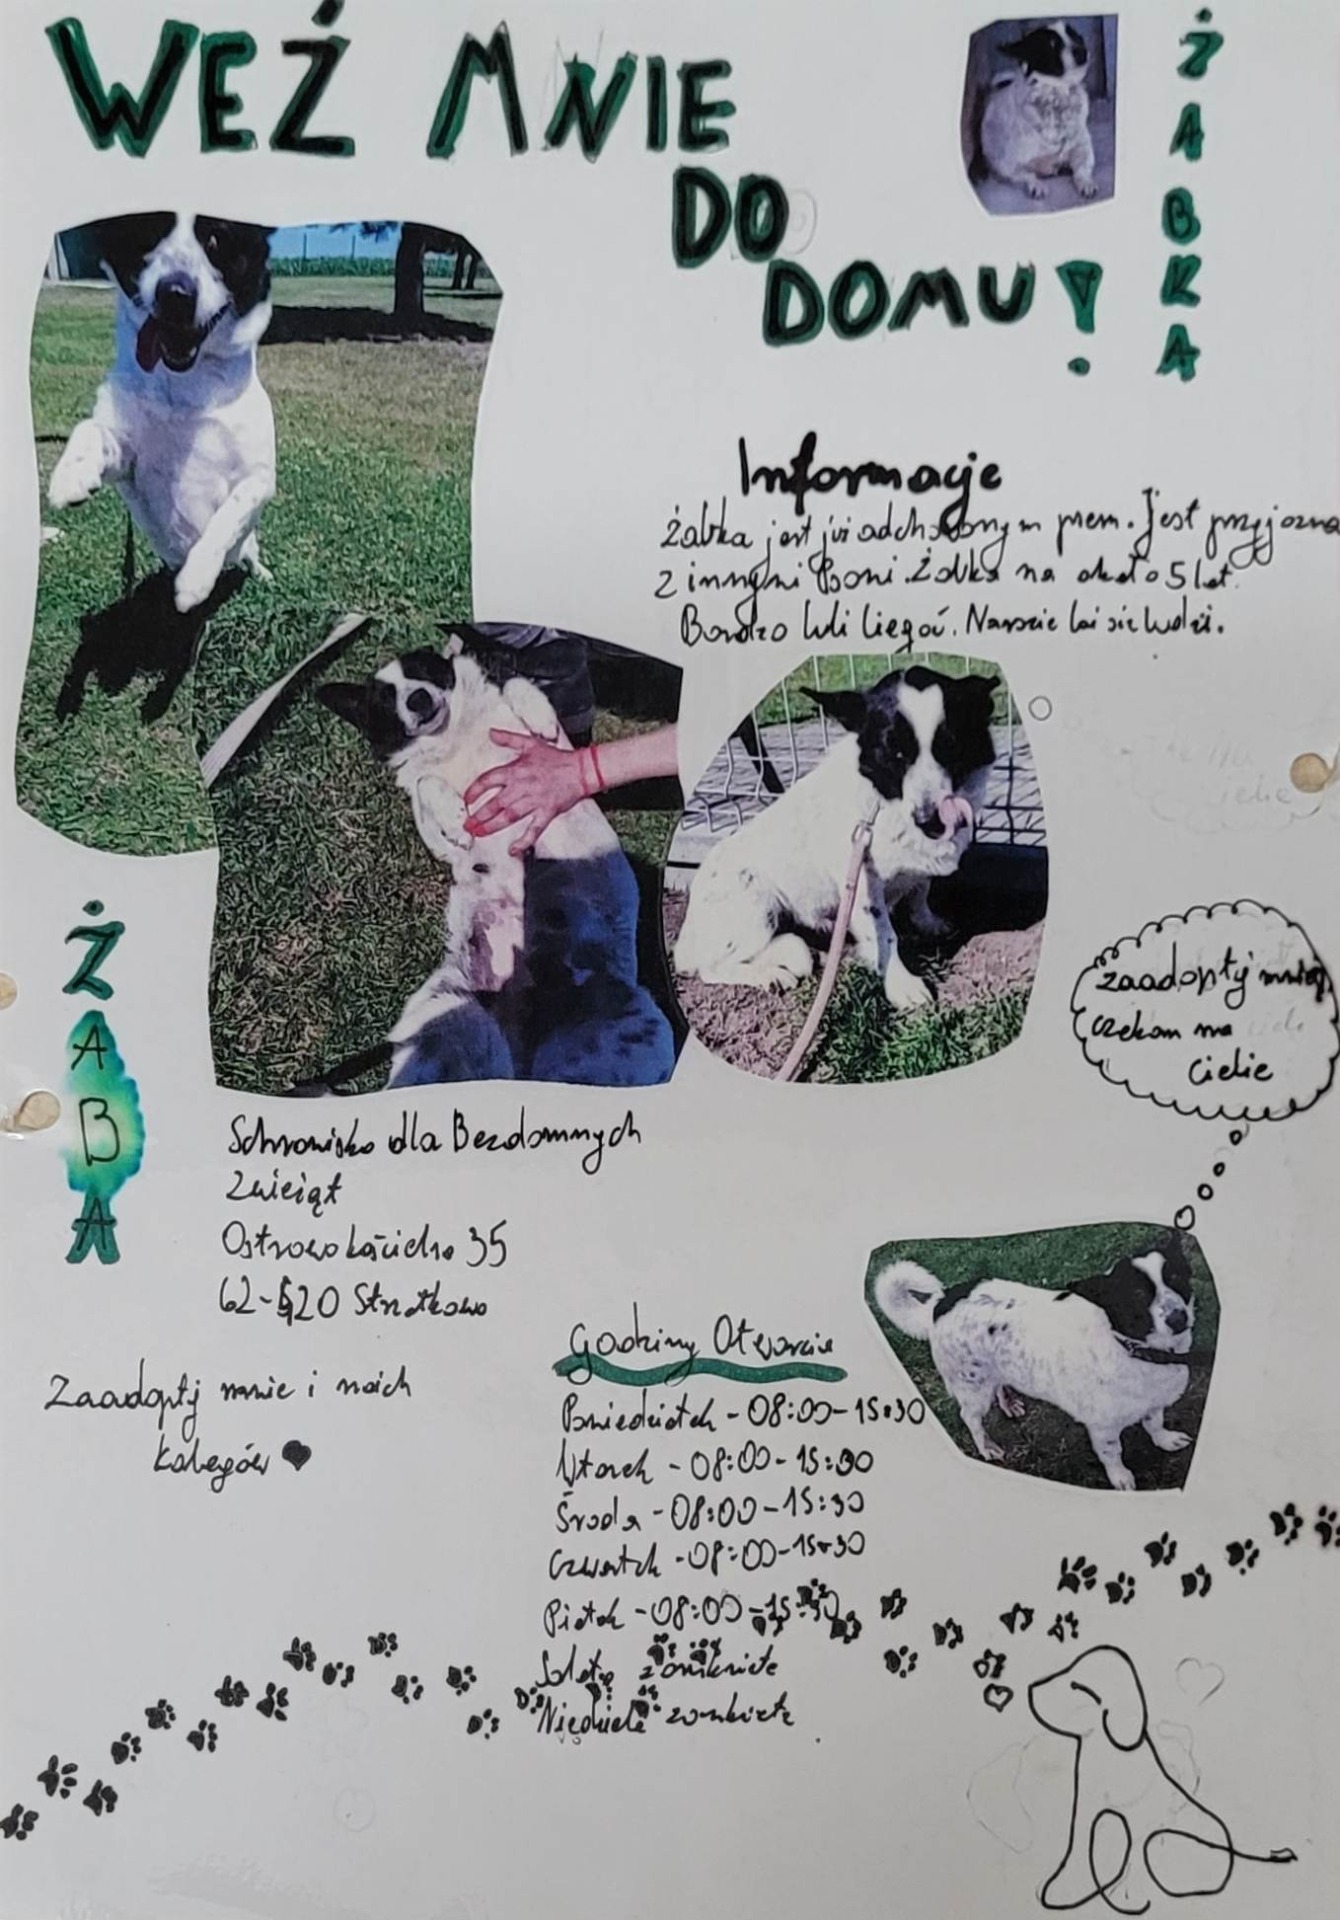 WEŹ MNIE
DO
DOMU!
ŻABKA
Informacje
Żabka jest już odchowanym psem. Jest przyjazna
z innymi psami. Żabka ma około 5 lat.
Bardzo lubi biegać. Narazie boi się ludzi.
zaadoptuj mnie,
czekam na
ciebie
ŻABA
Schronisko dla Bezdomnych
Zwieząt
Ostrowo kościelne 35
62-420 Strzałkowo
Zaadoptuj mnie i moich
kolegów
Godziny Otwarcia
Poniedziałek - 08:00-15:30
Wtorek - 08:00-15:30
Środa - 08:00-15:30
Czwartek - 08:00-15:30
Piątek - 08:00-15:30
Sobota zamknięte
Niedziela zamknięte